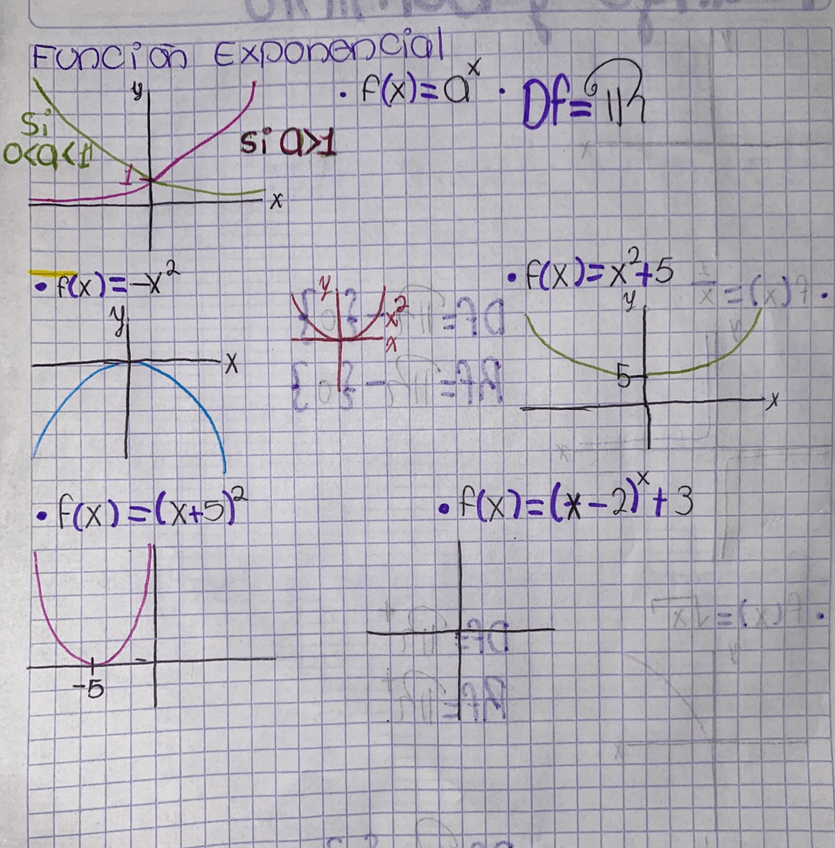 Función Exponencial
• f(x) = aˣ • Df = ℝ
y
Si
0<a<1
si a>1
1
x
• f(x) = -x²
y
x
y
x²
x
• f(x) = x²+5
y
5
x
• f(x) = (x+5)²
-5
• f(x) = (x-2)ˣ+3